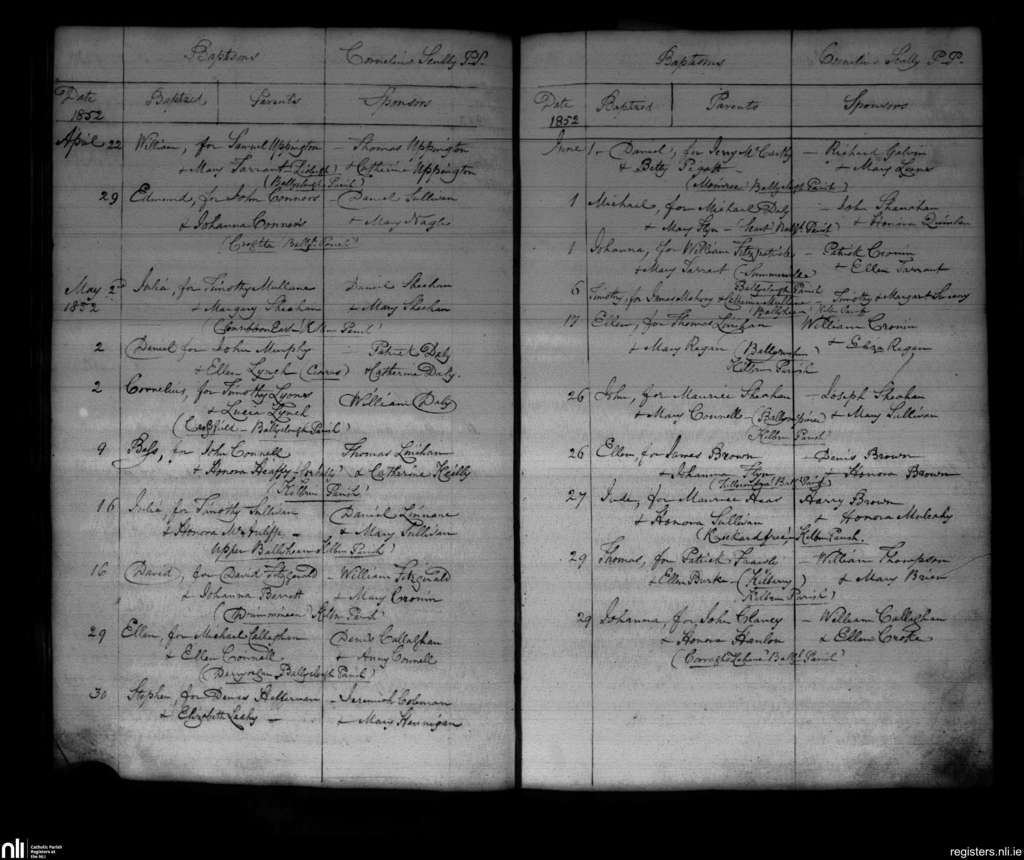 Baptisms Cornelius Scully P.P.
Date Baptized Parents Sponsors
1852
April 22 William, for Samuel Uppington — Thomas Uppington
& Mary Tarrant & Catherine Uppington
(Ballyclough Parish)
29 Edmund, for John Connors — Daniel Sullivan
& Johanna Connors & Mary Nagle
Parish)
May 2d Julia, for Timothy Mullane Daniel Sheehan
1852 & Margary Sheehan & Mary Sheehan
Parish)
2 Daniel for John Murphy — Patrick Daly
& Ellen Lynch & Catherine Daly.
2 Cornelius, for Timothy Lyons William Daly
& Lucia Lynch
— Ballyclough Parish)
9 Bess, for John Connell Thomas Linihan
& Honora Heaffy & Catharine Reilly
Kilbrin Parish)
16 Julia, for Timothy Sullivan Daniel Linnane
& Honora McAuliffe — & Mary Sullivan
Upper Ballyheen Kilbrin Parish)
16 David, for David Fitzgerald — William Fitzgerald
& Johanna Barrett & Mary Cronin
(Drumineen) Kilbn Parish)
29 Ellen, for Michael Callaghan Denis Callaghan
& Ellen Connell & Anny Connell
Ballyclough Parish)
30 Stephen, for Denis Hallernan — Jeremiah Coleman
& Elizabeth Leahy — & Mary Hannigan
Baptisms Cornelius Scully P.P.
Date Baptized Parents Sponsors
1852
June 1 — Daniel, for Jerry McCarthy — Richard Galvin
& Betty Pigott — & Mary Lane
Ballyclogh Parish)
1 Michael, for Michael Daly — John Shanahan
& Mary Flyn — Ballyh Parish) & Honora Quinlan
1 Johanna, for William Fitzpatrick — Patrick Cronin
& Mary Tarrant (Summerville & Ellen Tarrant
Ballyclough Parish
6 Timothy, for James Mahony & Catherine Mullane — Timothy & Margaret
Ballyheen (Kilbn Parish)
17 Ellen, for Thomas Linihan William Cronin
& Mary Regan & Eliza Regan
Kilbrin Parish
26 John, for Maurice Sheahan — Joseph Sheahan
& Mary Connell — & Mary Sullivan
Kilbrn Parish
26 Ellen for James Brown — Denis Brown
& Johanna Flyn & Honora Brown
27 Jude, for Maurice Haas Harry Brown
& Honora Sullivan & Honora Mulcahy
Kilbrn Parish.
29 Thomas, for Patrick Frawly — William Thompson
& Ellen Burke — & Mary Brien
Kilbrin Parish)
29 Johanna, for John Clancy — William Callaghan
& Honora Hanlon & Ellen Croke
Parish)
nli
Catholic Parish
Registers at
the NLI
registers.nli.ie